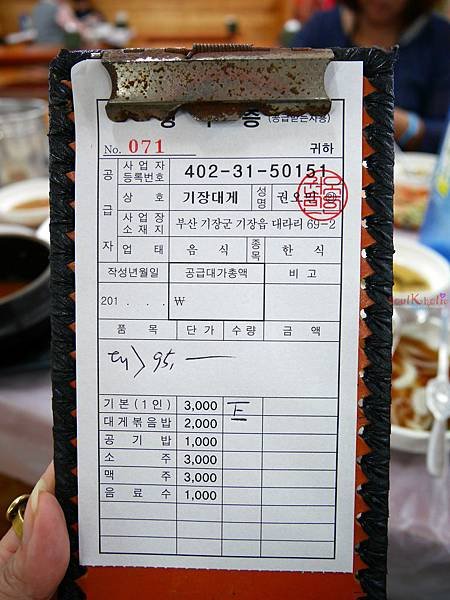 영 수 증 (공급받는자용)
No. 071 귀하
공급자
사업자등록번호 402-31-50151
상 호 기장대게 성명
사업장소재지 부산 기장군 기장읍 대라리 69-2
업 태 음 식 종목 한 식
작성년월일 공급대가총액 비 고
201 . . . ₩
품 목 단 가 수량 금 액
대> 95,—
기본(1인) 3,000 正
대게볶음밥 2,000
공 기 밥 1,000
소 주 3,000
맥 주 3,000
음 료 수 1,000